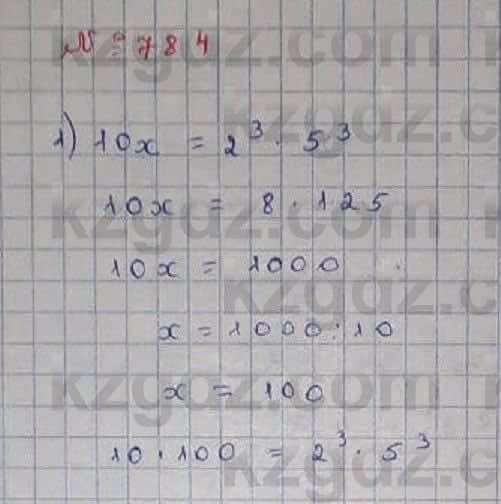 № 784
1) 10x = 2³ · 5³
10x = 8 · 125
10x = 1000
x = 1000 : 10
x = 100
10 · 100 = 2³ · 5³
kzgdz.com